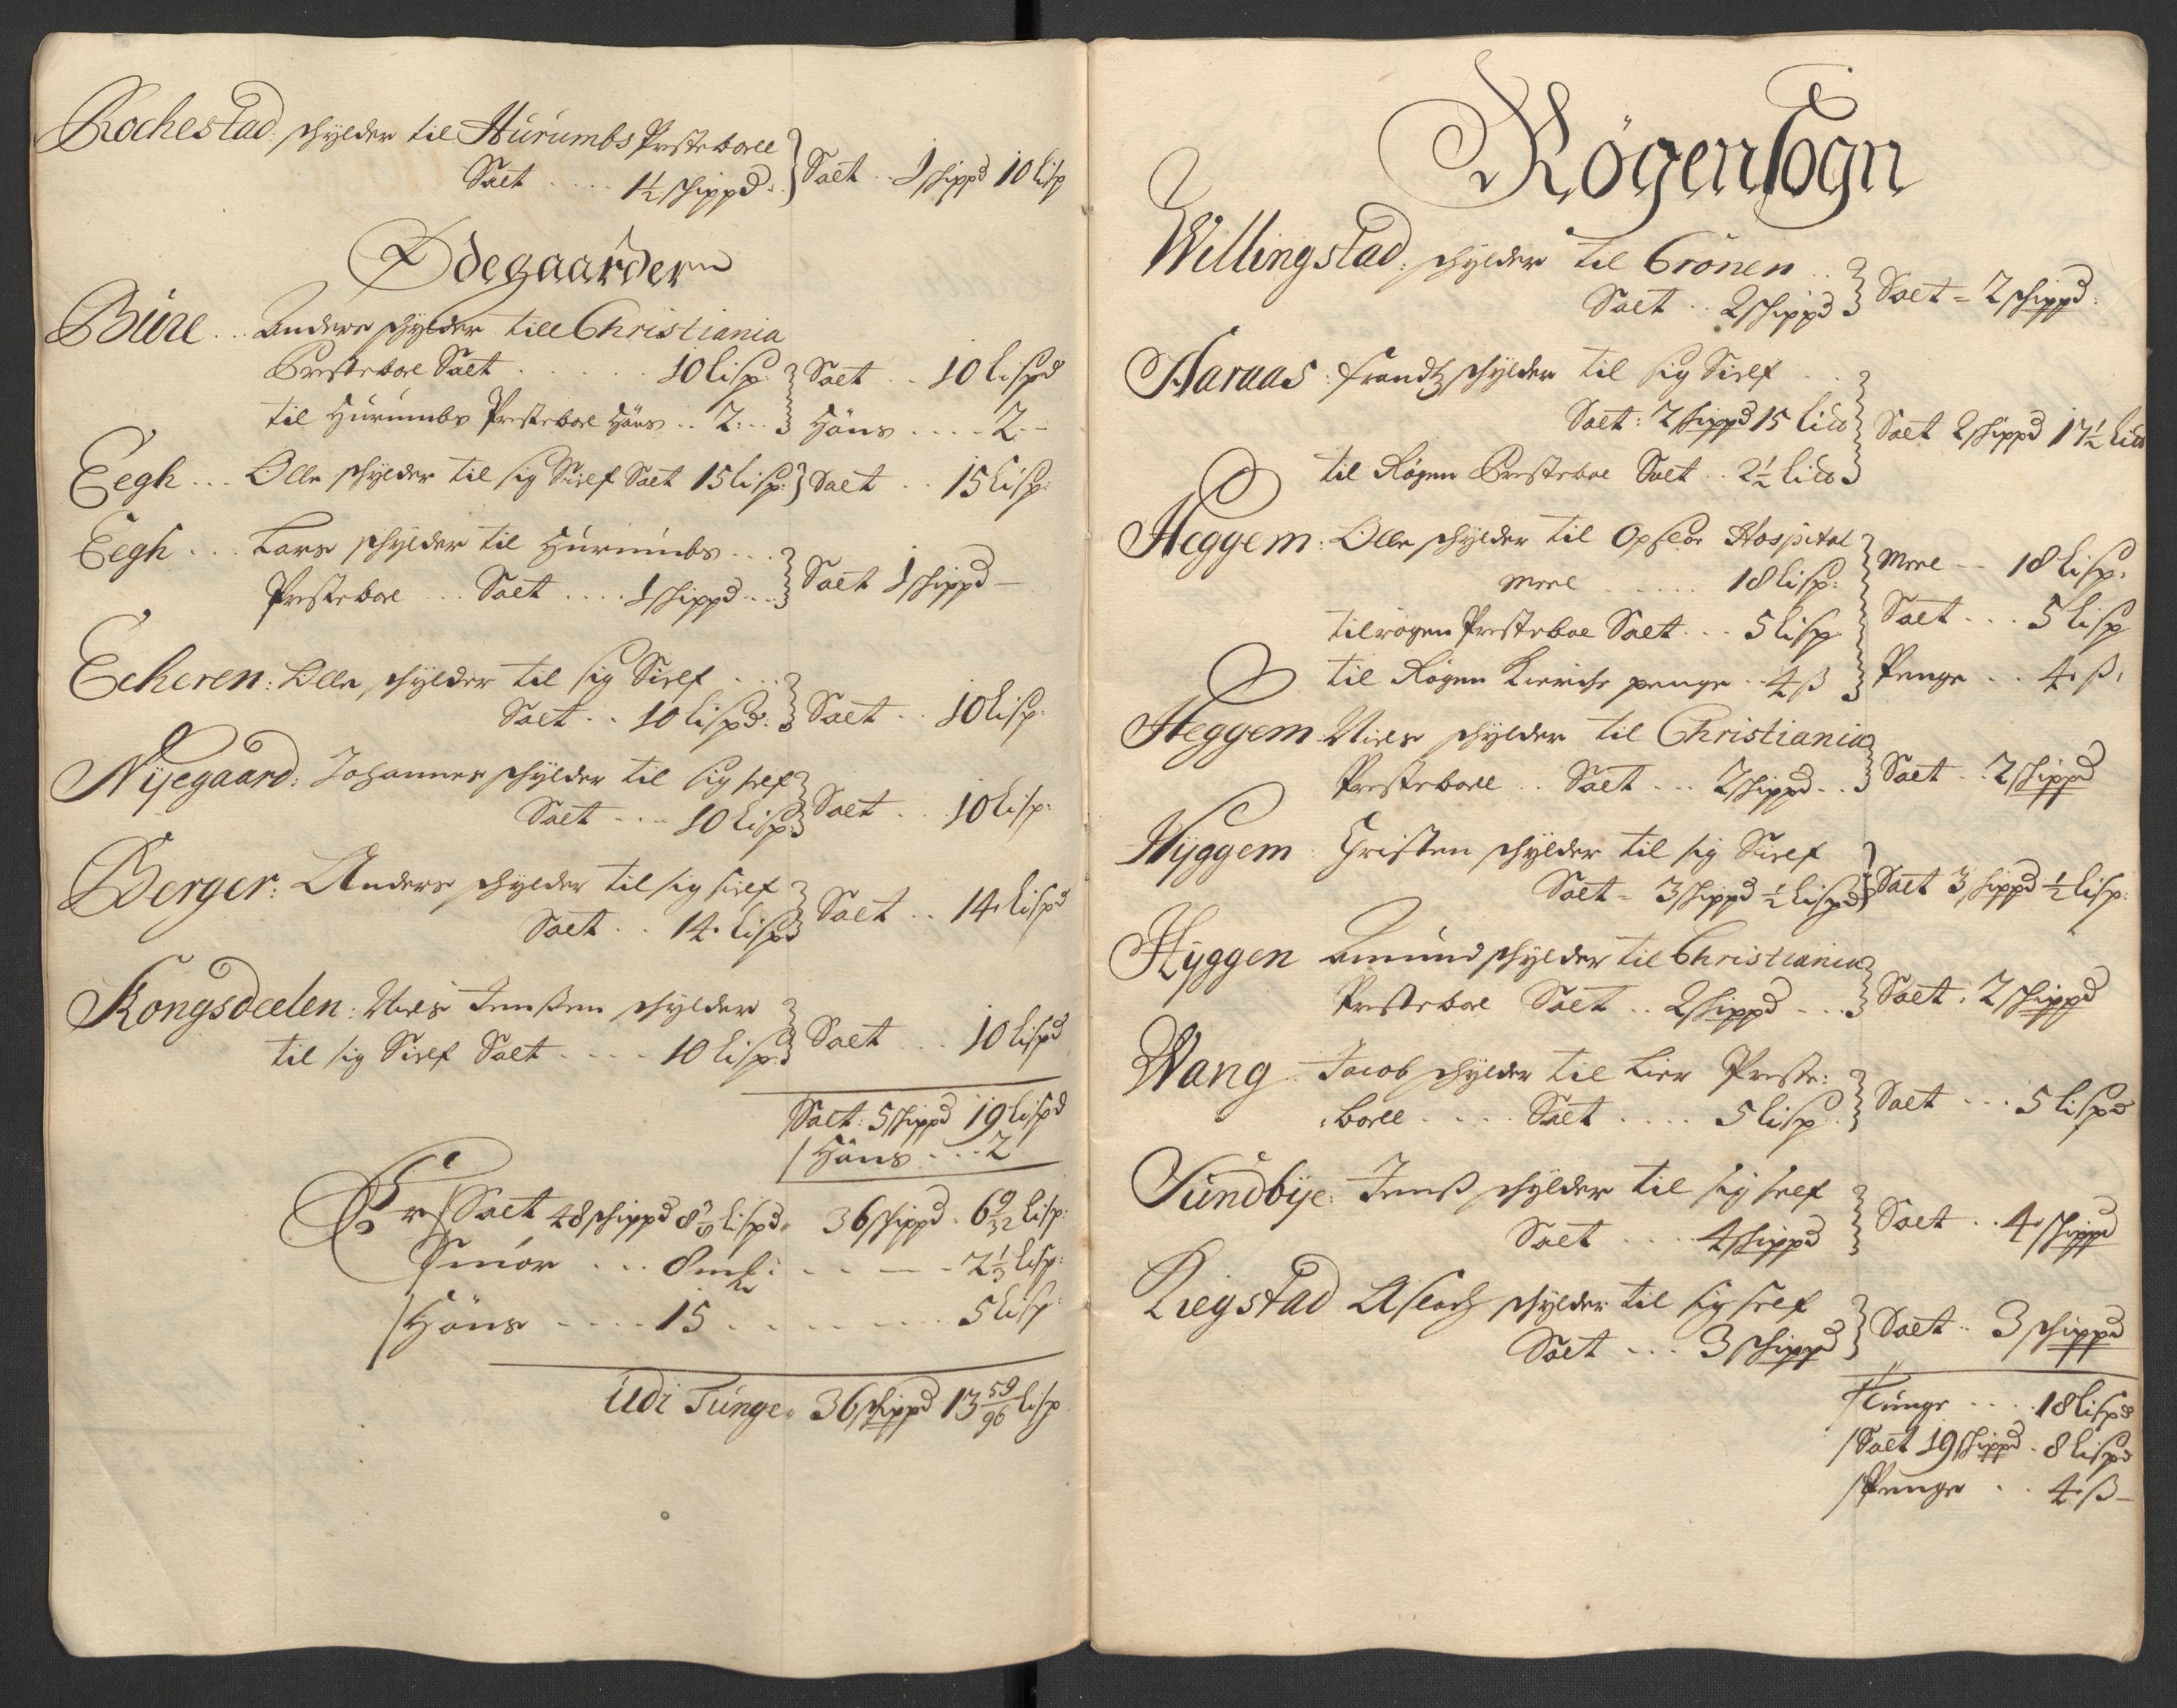 Rochestad: schylder til Hurumbs Presteboell
Salt .... 1½ schippd: } Salt .. 1 schippd 10 lisp
Ødegaarder
Büre .. Anders schylder till Christiania
Presteboe Salt ..... 10 lisp: } Salt .. 10 lispd
til Hurumbs Presteboe Höns .. 2: .. } Höns .... 2 -
Eegh ... Olle schylder til sig Sielf Salt 15 lisp: } Salt .. 15 lisp:
Eegh ... Lars schylder til Hurumbs ...
Presteboe ... Salt .... 1 schippd ... } Salt 1 schippd -
Echeren: Olle schylder til sig Sielf ...
Salt .. 10 lispd: } Salt .. 10 lisp:
Nÿegaard: Johannes schylder til sig self
Salt .... 10 lisp: } Salt .. 10 lisp:
Berger: Anders schylder til sig sielf
Salt .. 14 lispd } Salt .. 14 lispd
Kongsdeelen: Niels Jenßen schylder
til sig Sielf Salt .... 10 lispd } Salt ... 10 lispd
Salt: 5 schippd 19 lispd
Höns ... 2
Er Salt 48 schippd 8 lispd 36 schippd . 6 9/32 lisp:
Smör ... 8 mk: ... 2⅓ lisp:
Höns .... 15 ........ 5 lisp
Udi Tunge 36 schippd 13 59/96 lisp
Røgen Sogn
Willingstad: schylder til Cronen ..
Salt .. 2 schippd } Salt = 2 schippd:
Haraas: frandtz schylder til sig Sielf
Salt: 2 schippd 15 lid } Salt 2 schippd 17½ lid
til Røgen Presteboe Salt .. 2½ lid
Heggem: Olle schylder til Opsloe Hospital
Meel ...... 18 lisp: } Meel -- 18 lisp:
til røgen Presteboe Salt ... 5 lisp } Salt ... 5 lisp
til Røgen Kierche penge .. 4 ß } Penge .. 4 ß.
Heggem Niels schylder til Christiania
Presteboell .. Salt ... 2 schippd .. } Salt .. 2 schippd
Hÿggem: Christen schylder til sig Sielf
Salt = 3 schippd ½ lispd } Salt 3 schippd ½ lisp:
Hÿggen Amund schylder til Christiania
Presteboe Salt .. 2 schippd ... } Salt . 2 schippd
Wang .. Jacob schylder til Lier Preste:
boell .... Salt .... 5 lisp } Salt ... 5 lispd
Sundbÿe: Jenß schylder til sig self
Salt ... 4 schippd } Salt .. 4 schippd
Kiegstad Aslach schylder til sig self
Salt ... 3 schippd } Salt .. 3 schippd
Tunge .... 18 lispd
Salt 19 schippd . 8 lispd
Penge .. 4 ß -